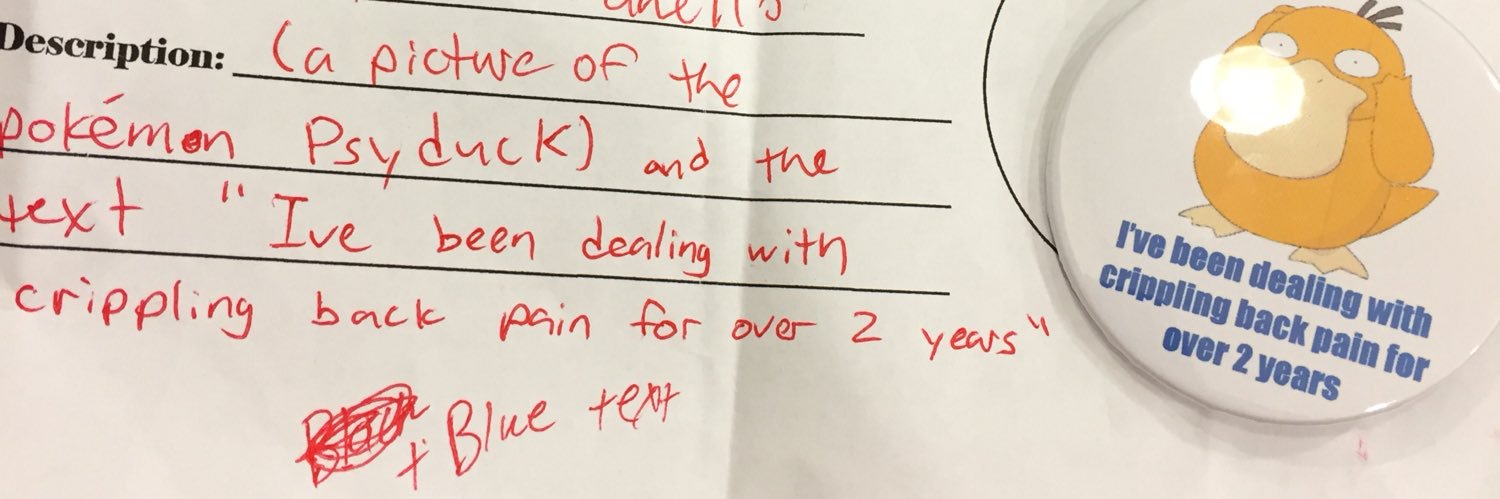 Description: (a picture of the
pokémon Psyduck) and the
text "Ive been dealing with
crippling back pain for over 2 years"
+ Blue text
I've been dealing with
crippling back pain for
over 2 years